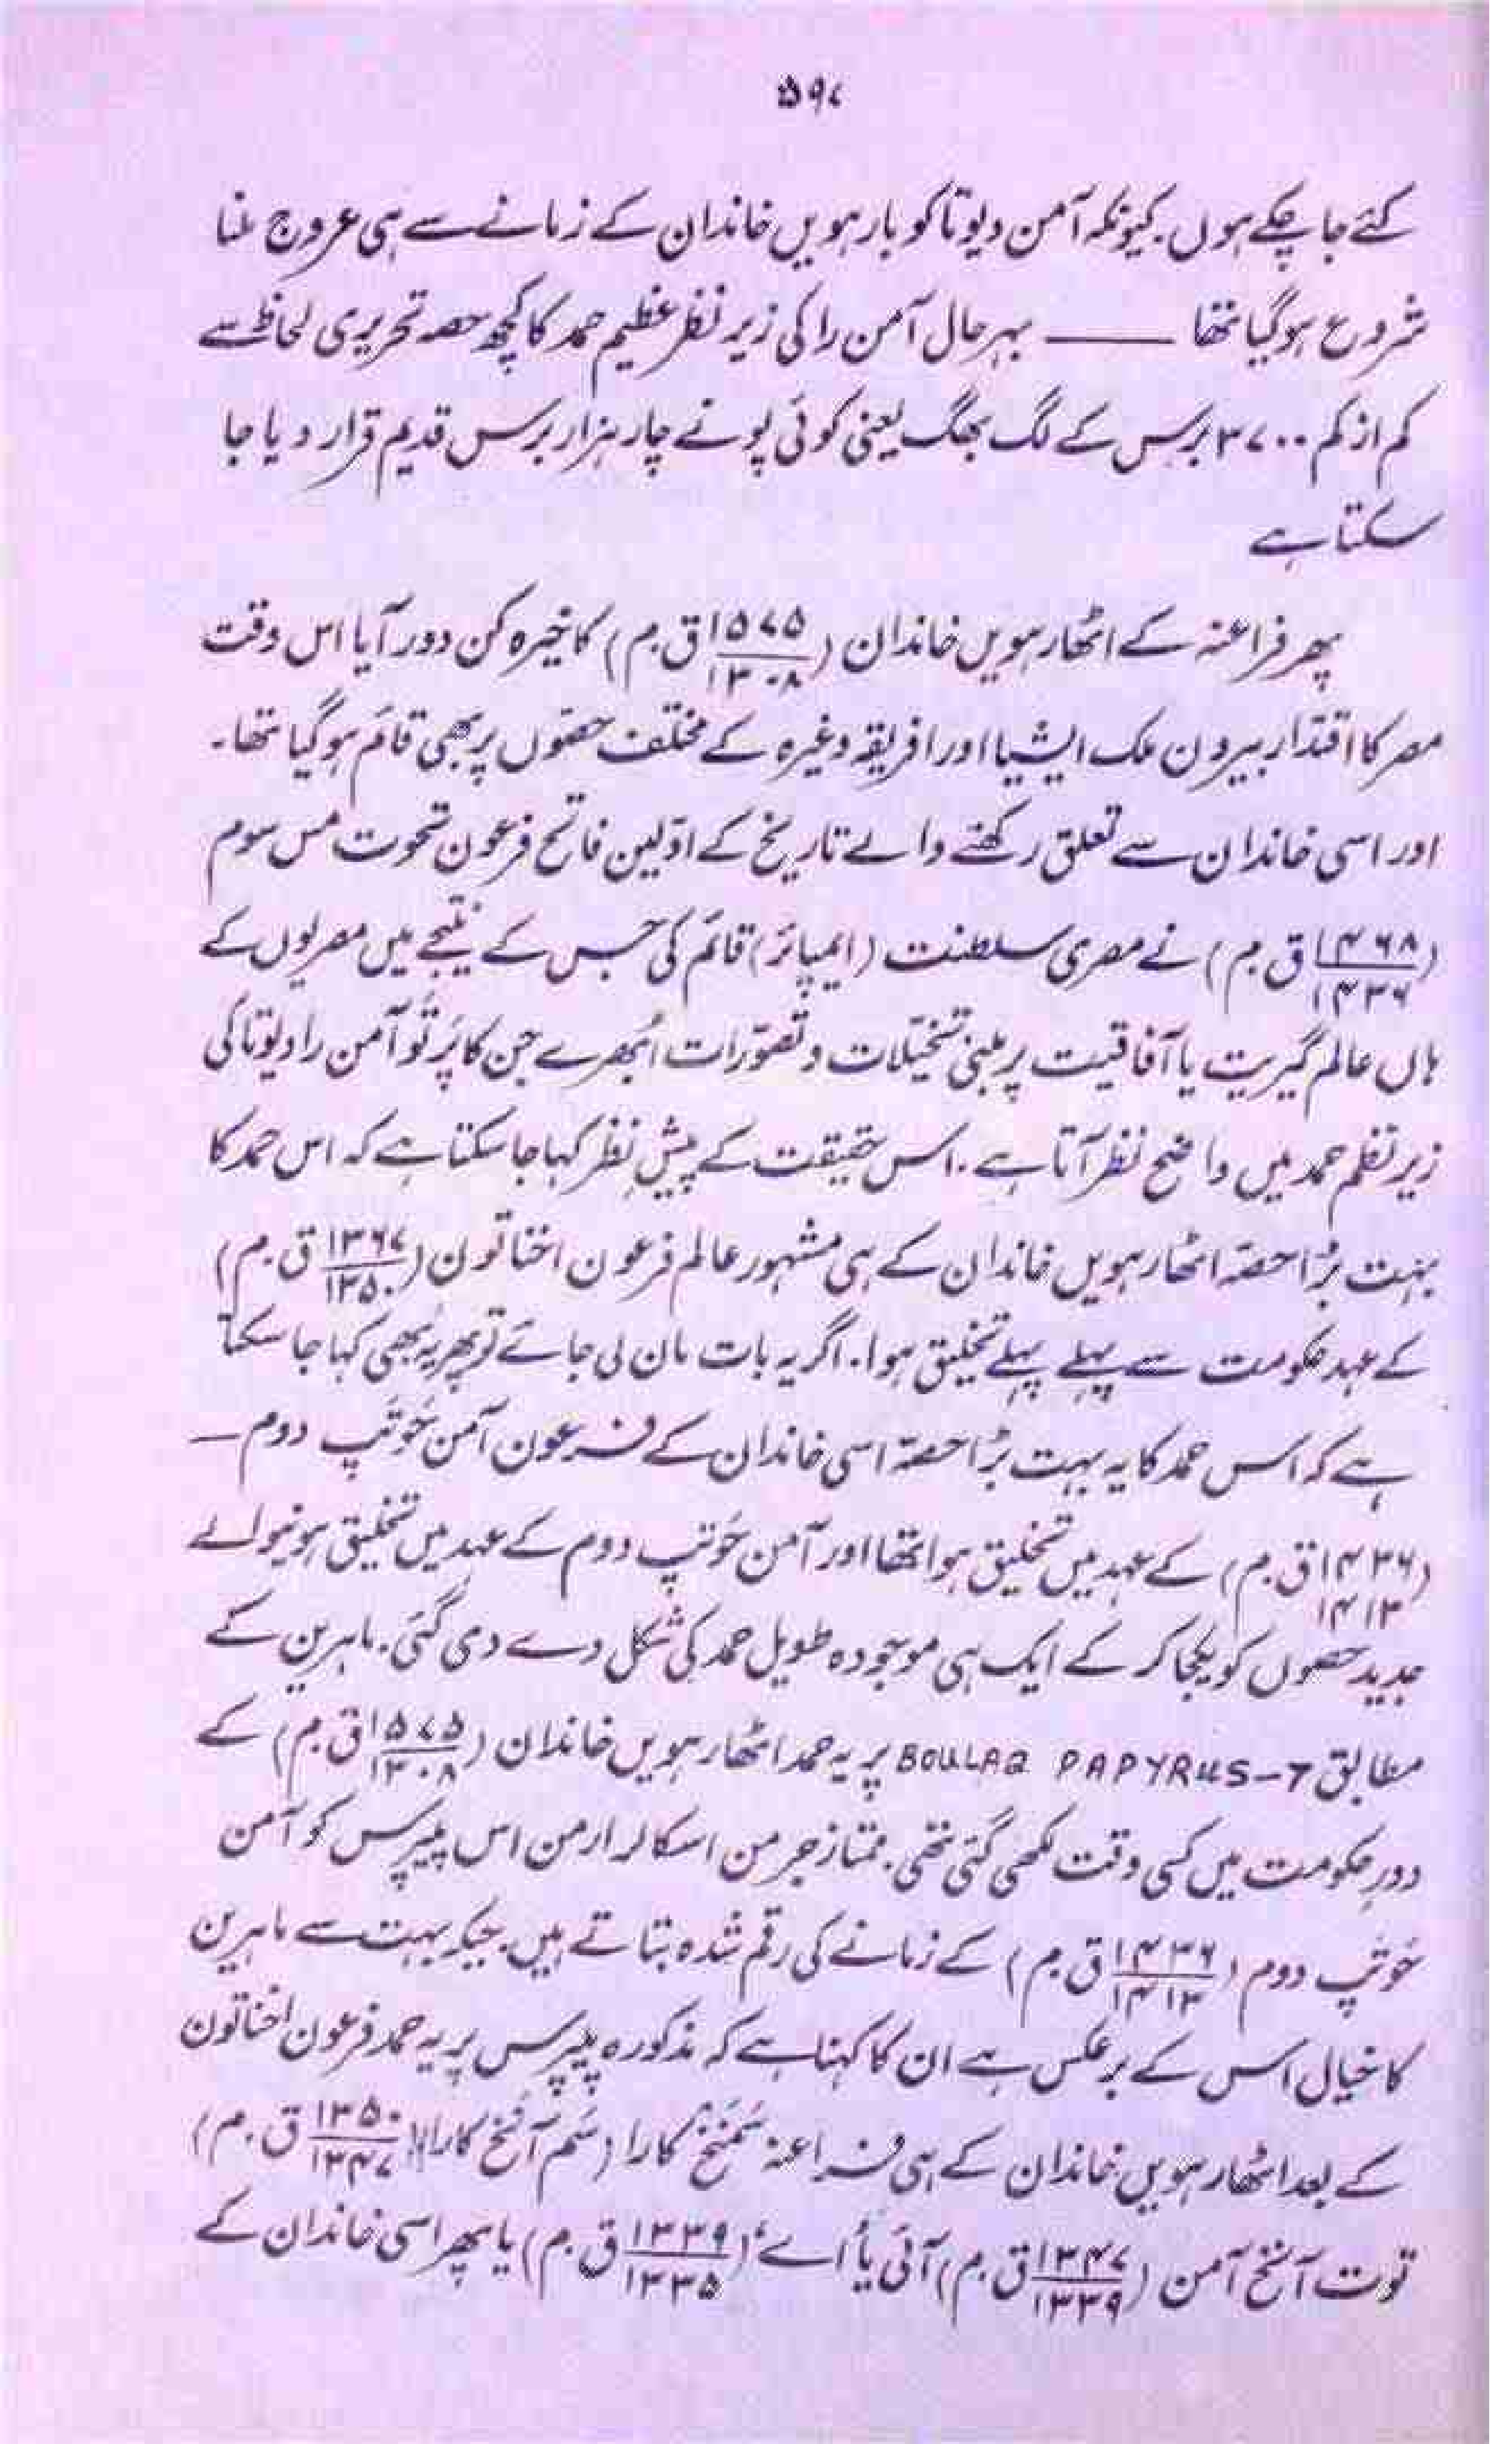 ۵۹۷
کئے جا چکے ہوں. کیونکہ آمن دیوتا کو بارہویں خاندان کے زمانے سے ہی عروج ملنا
شروع ہو گیا تھا ——— بہر حال آمن را کی زیر نظر عظیم حمد کا کچھ حصہ تحریری لحاظ سے
کم از کم ۳۷۰۰ برس کے لگ بھگ یعنی کوئی پونے چار ہزار برس قدیم قرار دیا جا
سکتا ہے
پھر فراعنہ کے اٹھارہویں خاندان (۱۵۷۵/۱۳۰۸ ق.م) کا خیرہ کن دور آیا اس وقت
مصر کا اقتدار بیرون ملک ایشیا اور افریقہ وغیرہ کے مختلف حصّوں پر بھی قائم ہو گیا تھا۔
اور اسی خاندان سے تعلق رکھنے والے تاریخ کے اوّلین فاتح فرعون تحوت مس سوم
(۱۴۶۸/۱۴۳۶ ق.م) نے مصری سلطنت (ایمپائر) قائم کی جس کے نتیجے میں مصریوں کے
ہاں عالم گیریت یا آفاقیت پر مبنی تخیّلات و تصوّرات اُبھرے جن کا پَرتَو آمن را دیوتا کی
زیر نظم حمد میں واضح نظر آتا ہے. اس حقیقت کے پیشِ نظر کہا جا سکتا ہے کہ اس حمد کا
بہت بڑا حصّہ اٹھارہویں خاندان کے ہی مشہور عالم فرعون اخناتون (۱۳۶۷/۱۳۵۰ ق.م)
کے عہد حکومت سے پہلے پہلے تخلیق ہوا. اگر یہ بات مان لی جائے تو پھر یہ بھی کہا جا سکتا
ہے کہ اس حمد کا یہ بہت بڑا حصّہ اسی خاندان کے فرعون آمن حَوتَپ دوم —
(۱۴۳۶/۱۴۱۳ ق.م) کے عہد میں تخلیق ہوا تھا اور آمن حَوتپ دوم کے عہد میں تخلیق ہونیوالے
جدید حصوں کو یکجا کر کے ایک ہی موجودہ طویل حمد کی شکل دے دی گئی. ماہرین کے
مطابق BOULAQ PAPYRUS-7 پر یہ حمد اٹھارہویں خاندان (۱۵۷۵/۱۳۰۸ ق.م) کے
دورِ حکومت میں کسی وقت لکھی گئی تھی. ممتاز جرمن اسکالر ارمن اس پیپرس کو آمن
حَوتَپ دوم (۱۴۳۶/۱۴۱۳ ق.م) کے زمانے کی رقم شدہ بتاتے ہیں. جبکہ بہت سے ماہرین
کا خیال اس کے برعکس ہے ان کا کہنا ہے کہ مذکورہ پیپرس پر یہ حمد فرعون اخناتون
کے بعد اٹھارہویں خاندان کے ہی فراعنہ سَمَنخ کارا (سَم آنخ کارا) (۱۳۵۰/۱۳۴۷ ق.م)
توت آنخ آمن (۱۳۴۷/۱۳۳۹ ق.م) آئی یا اے (۱۳۳۹/۱۳۳۵ ق.م) یا پھر اسی خاندان کے